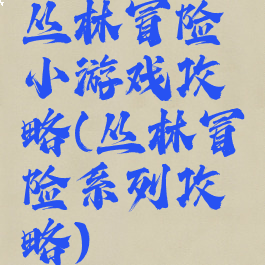 丛林冒险
小游戏攻
略(丛林冒
险系列攻
略)